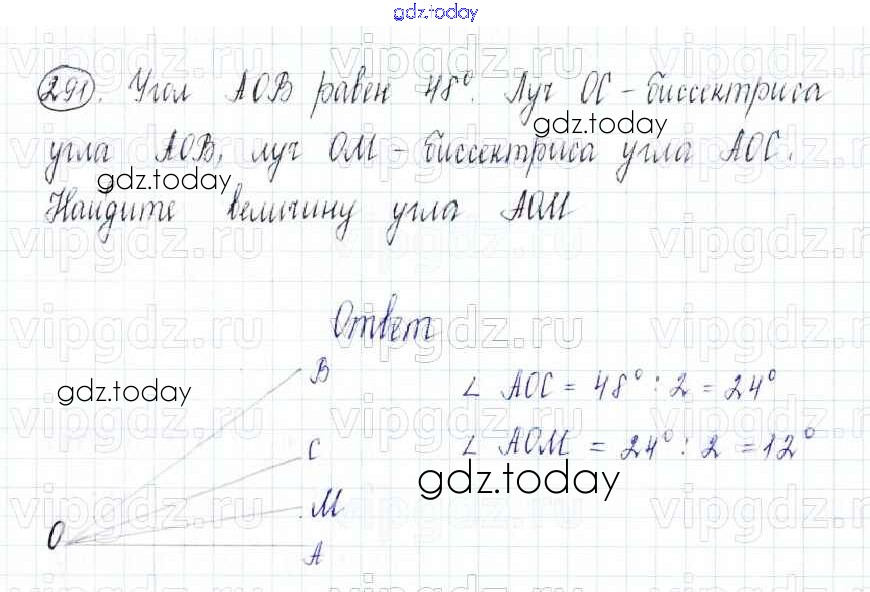 gdz.today
vipgdz.ru vipgdz.ru vipgdz.ru
291. Угол AOB равен 48°. Луч OC - биссектриса
gdz.today
угла AOB, луч OM - биссектриса угла AOC.
vipgdz.ru vipgdz.ru vipgdz.ru
gdz.today
Найдите величину угла AOM
vipgdz.ru vipgdz.ru vipgdz.ru
Ответ
vipgdz.ru vipgdz.ru vipgdz.ru
B
∠ AOC = 48° : 2 = 24°
gdz.today
vipgdz.ru vipgdz.ru vipgdz.ru
C
∠ AOM = 24° : 2 = 12°
gdz.today
M
vipgdz.ru vipgdz.ru vipgdz.ru
O
A
vipgdz.ru vipgdz.ru vipgdz.ru